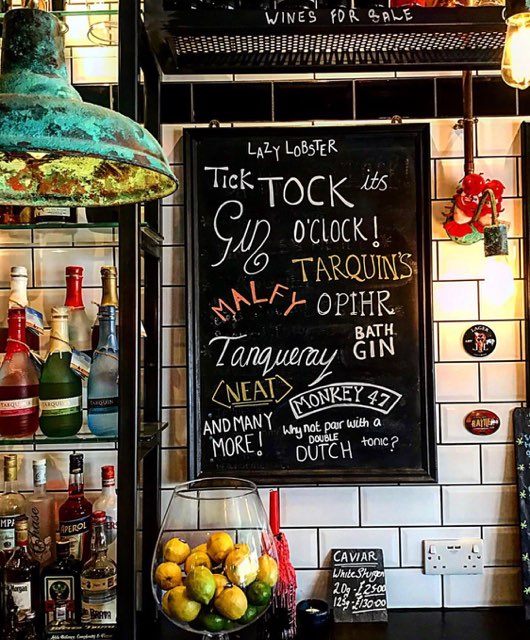 WINES FOR SALE
LAZY LOBSTER
TICK TOCK its
GIN O'CLOCK!
TARQUIN'S
MALFY OPIHR
Tanqueray BATH GIN
NEAT MONKEY 47
AND MANY MORE!
Why not pair with a DOUBLE DUTCH tonic?
CAVIAR
White Sturgen
20g £25.00
125g £130.00
LAGER
TARQUIN'S
APEROL